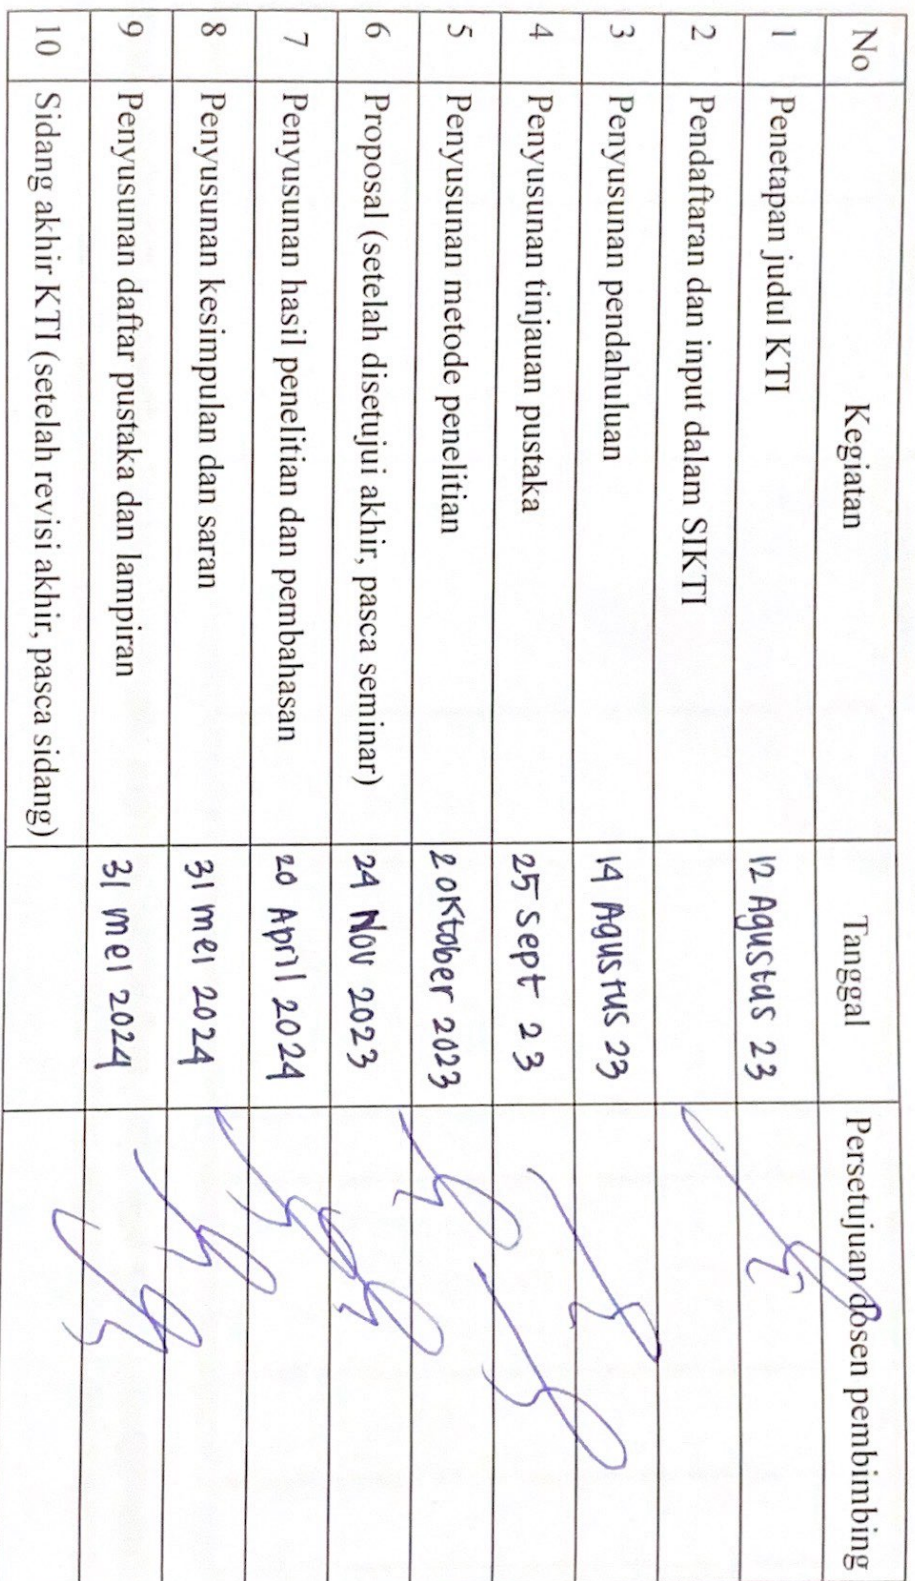 No Kegiatan Tanggal Persetujuan dosen pembimbing
1 Penetapan judul KTI 12 Agustus 23
2 Pendaftaran dan input dalam SIKTI
3 Penyusunan pendahuluan 14 Agustus 23
4 Penyusunan tinjauan pustaka 25 sept 23
5 Penyusunan metode penelitian 2 oktober 2023
6 Proposal (setelah disetujui akhir, pasca seminar) 24 Nov 2023
7 Penyusunan hasil penelitian dan pembahasan 20 April 2024
8 Penyusunan kesimpulan dan saran 31 mei 2024
9 Penyusunan daftar pustaka dan lampiran 31 mei 2024
10 Sidang akhir KTI (setelah revisi akhir, pasca sidang)